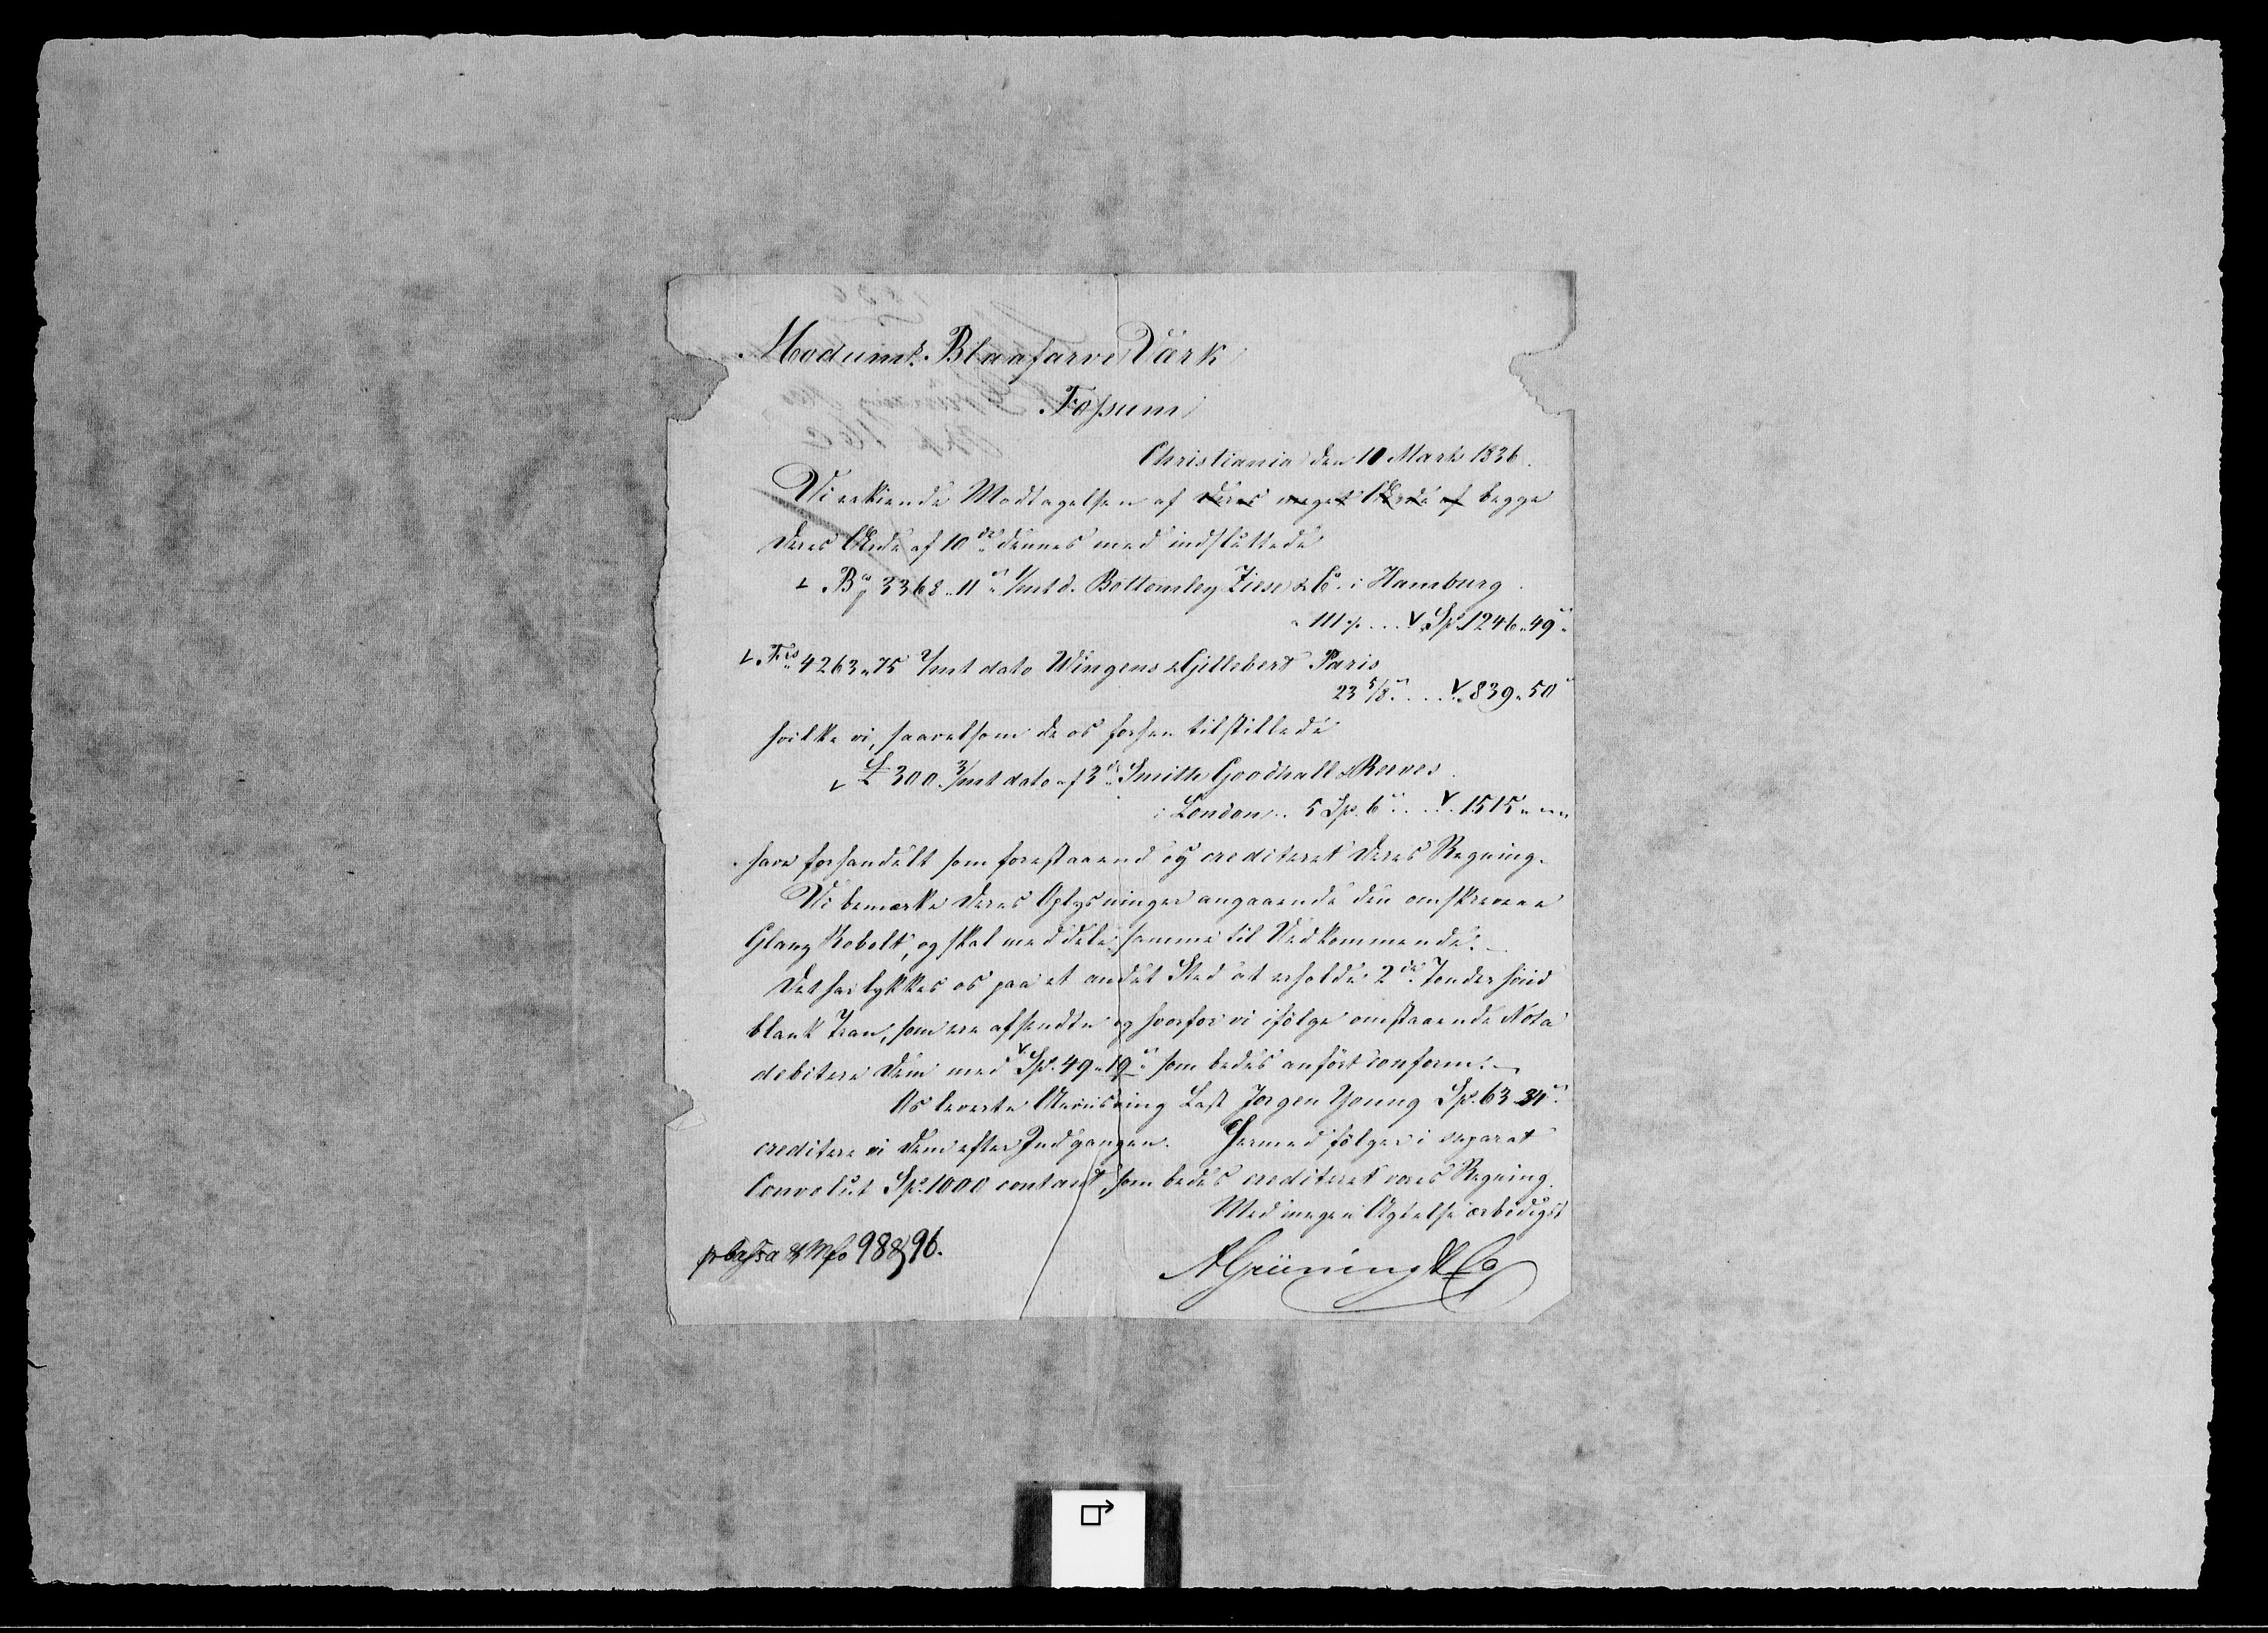 Modums Blaafarve Værk
Fossum
Christiania den 10 Marts 1836.
Vi erkiende Modtagelsen af Deres meget ærede af begge
Deres Ærede af 10de dennes med indsluttede
Bco 3368 " 11 " 1/mt d. Bottomley Ziese & Co. i Hamburg
111 % . . . Sp 1246 " 49 "
Frcs 4263 " 75 2/mt dato Wingens & Gillebert Paris
23 5/8 . . . 839 " 50
hvilke vi, saavelsom de os forhen tilstillede
£ 300. 3/mt dato af 3d Smith Goodhall & Reeves
i London . . 5 Sp. 6 . . . 1515 " "
have forhandelt som forestaaend og crediteret Deres Regning.
Vi bemærke Deres Oplysninger angaaende den omskrevene
Glanz Kobolt, og skal meddele samme til Vedkommende.
Det har lykkes os paa et andet Sted at erholde 2de Tønder hvid
blank Tran, som ere afsendte og hvorfor vi ifølge omstaaende Nota
debitere Dem med Sp. 49 " 19 som bedes anført conform.
Os leverte Anviisning Last Jørgen Young Sp. 63 " 34
creditere vi Dem efter Indgangen. Hermed følger i separat
Convolut Sp. 1000 contant, som bedes crediteret vores Regning.
Med megen Agtelse ærbødigst
98 & 96.
A Grüning & Co